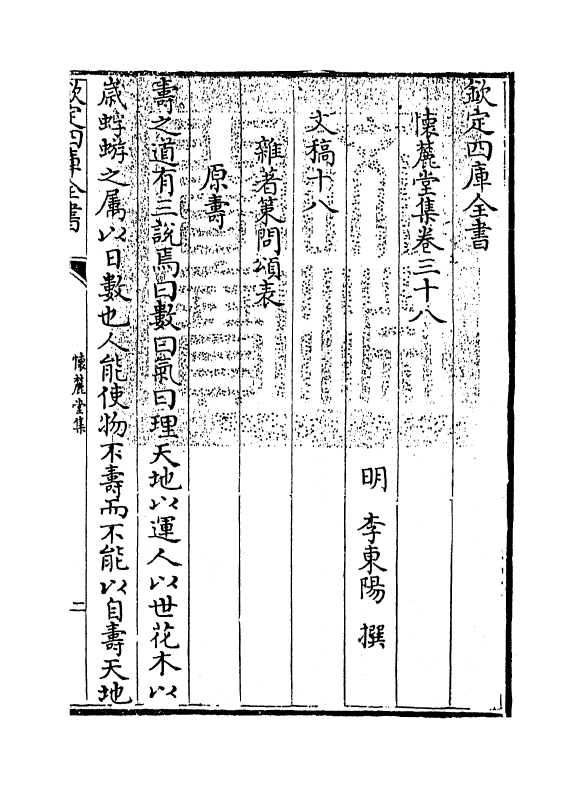 欽定四庫全書
懷麓堂集卷三十八
明 李東陽 撰
文稿十八
雜著策問頌表
原壽
壽之道有三說焉曰數曰氣曰理天地以運人以世花木以
歲蜉蝣之属以日數也人能使物不壽而不能以自壽天地
欽定四庫全書
懷麓堂集
二